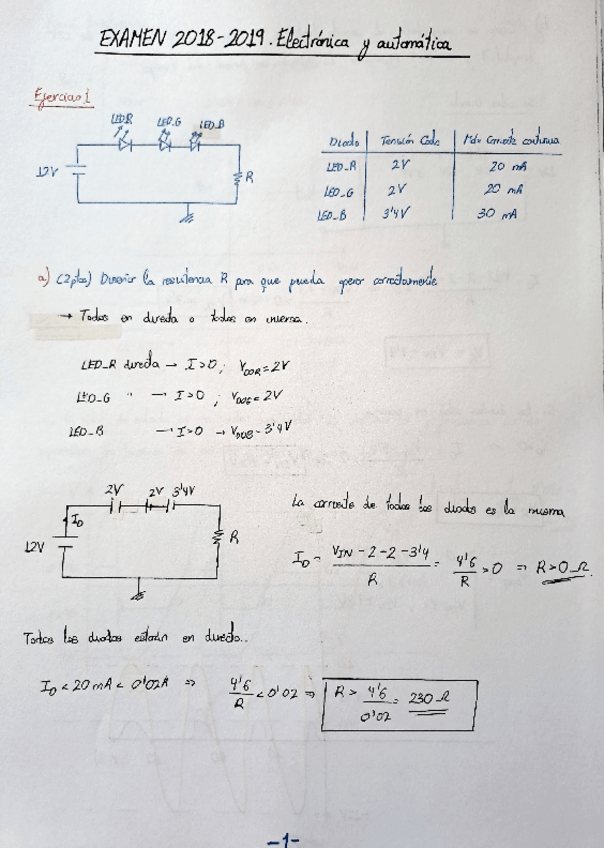 EXAMEN 2018-2019. Electrónica y automática
Ejercicio 1
LED_R LED_G LED_B
12V
R
Diodo Tensión Codo Máx Corriente continua
LED_R 2V 20 mA
LED_G 2V 20 mA
LED_B 3'4V 30 mA
a) (2ptos) Diseñar la resistencia R para que pueda operar correctamente
→ Todos en directa o todos en inversa.
LED_R directa → I>0; VDDR=2V
LED_G " → I>0; VDDG=2V
LED_B → I>0 → VDDB=3'4V
2V 2V 3'4V
ID
12V
R
La corriente de todos los diodos es la misma
ID = VIN - 2 - 2 - 3'4 / R = 4'6 / R > 0 ⇒ R>0 Ω
Todos los diodos estarán en directo..
ID < 20 mA < 0'02A ⇒ 4'6 / R < 0'02 ⇒ R > 4'6 / 0'02 = 230 Ω
-1-